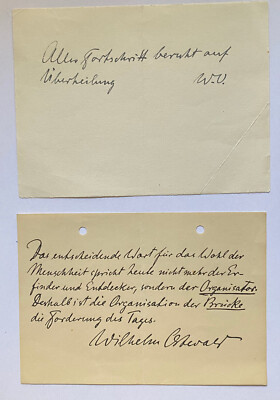 Aller Fortschritt beruht auf
Überheilung W.O.
Das entscheidende Wort für das Wohl der
Menschheit spricht heute nicht mehr der Er-
finder und Entdecker, sondern der Organisator.
Deshalb ist die Organisation der Brücke
die Forderung des Tages.
Wilhelm Ostwald